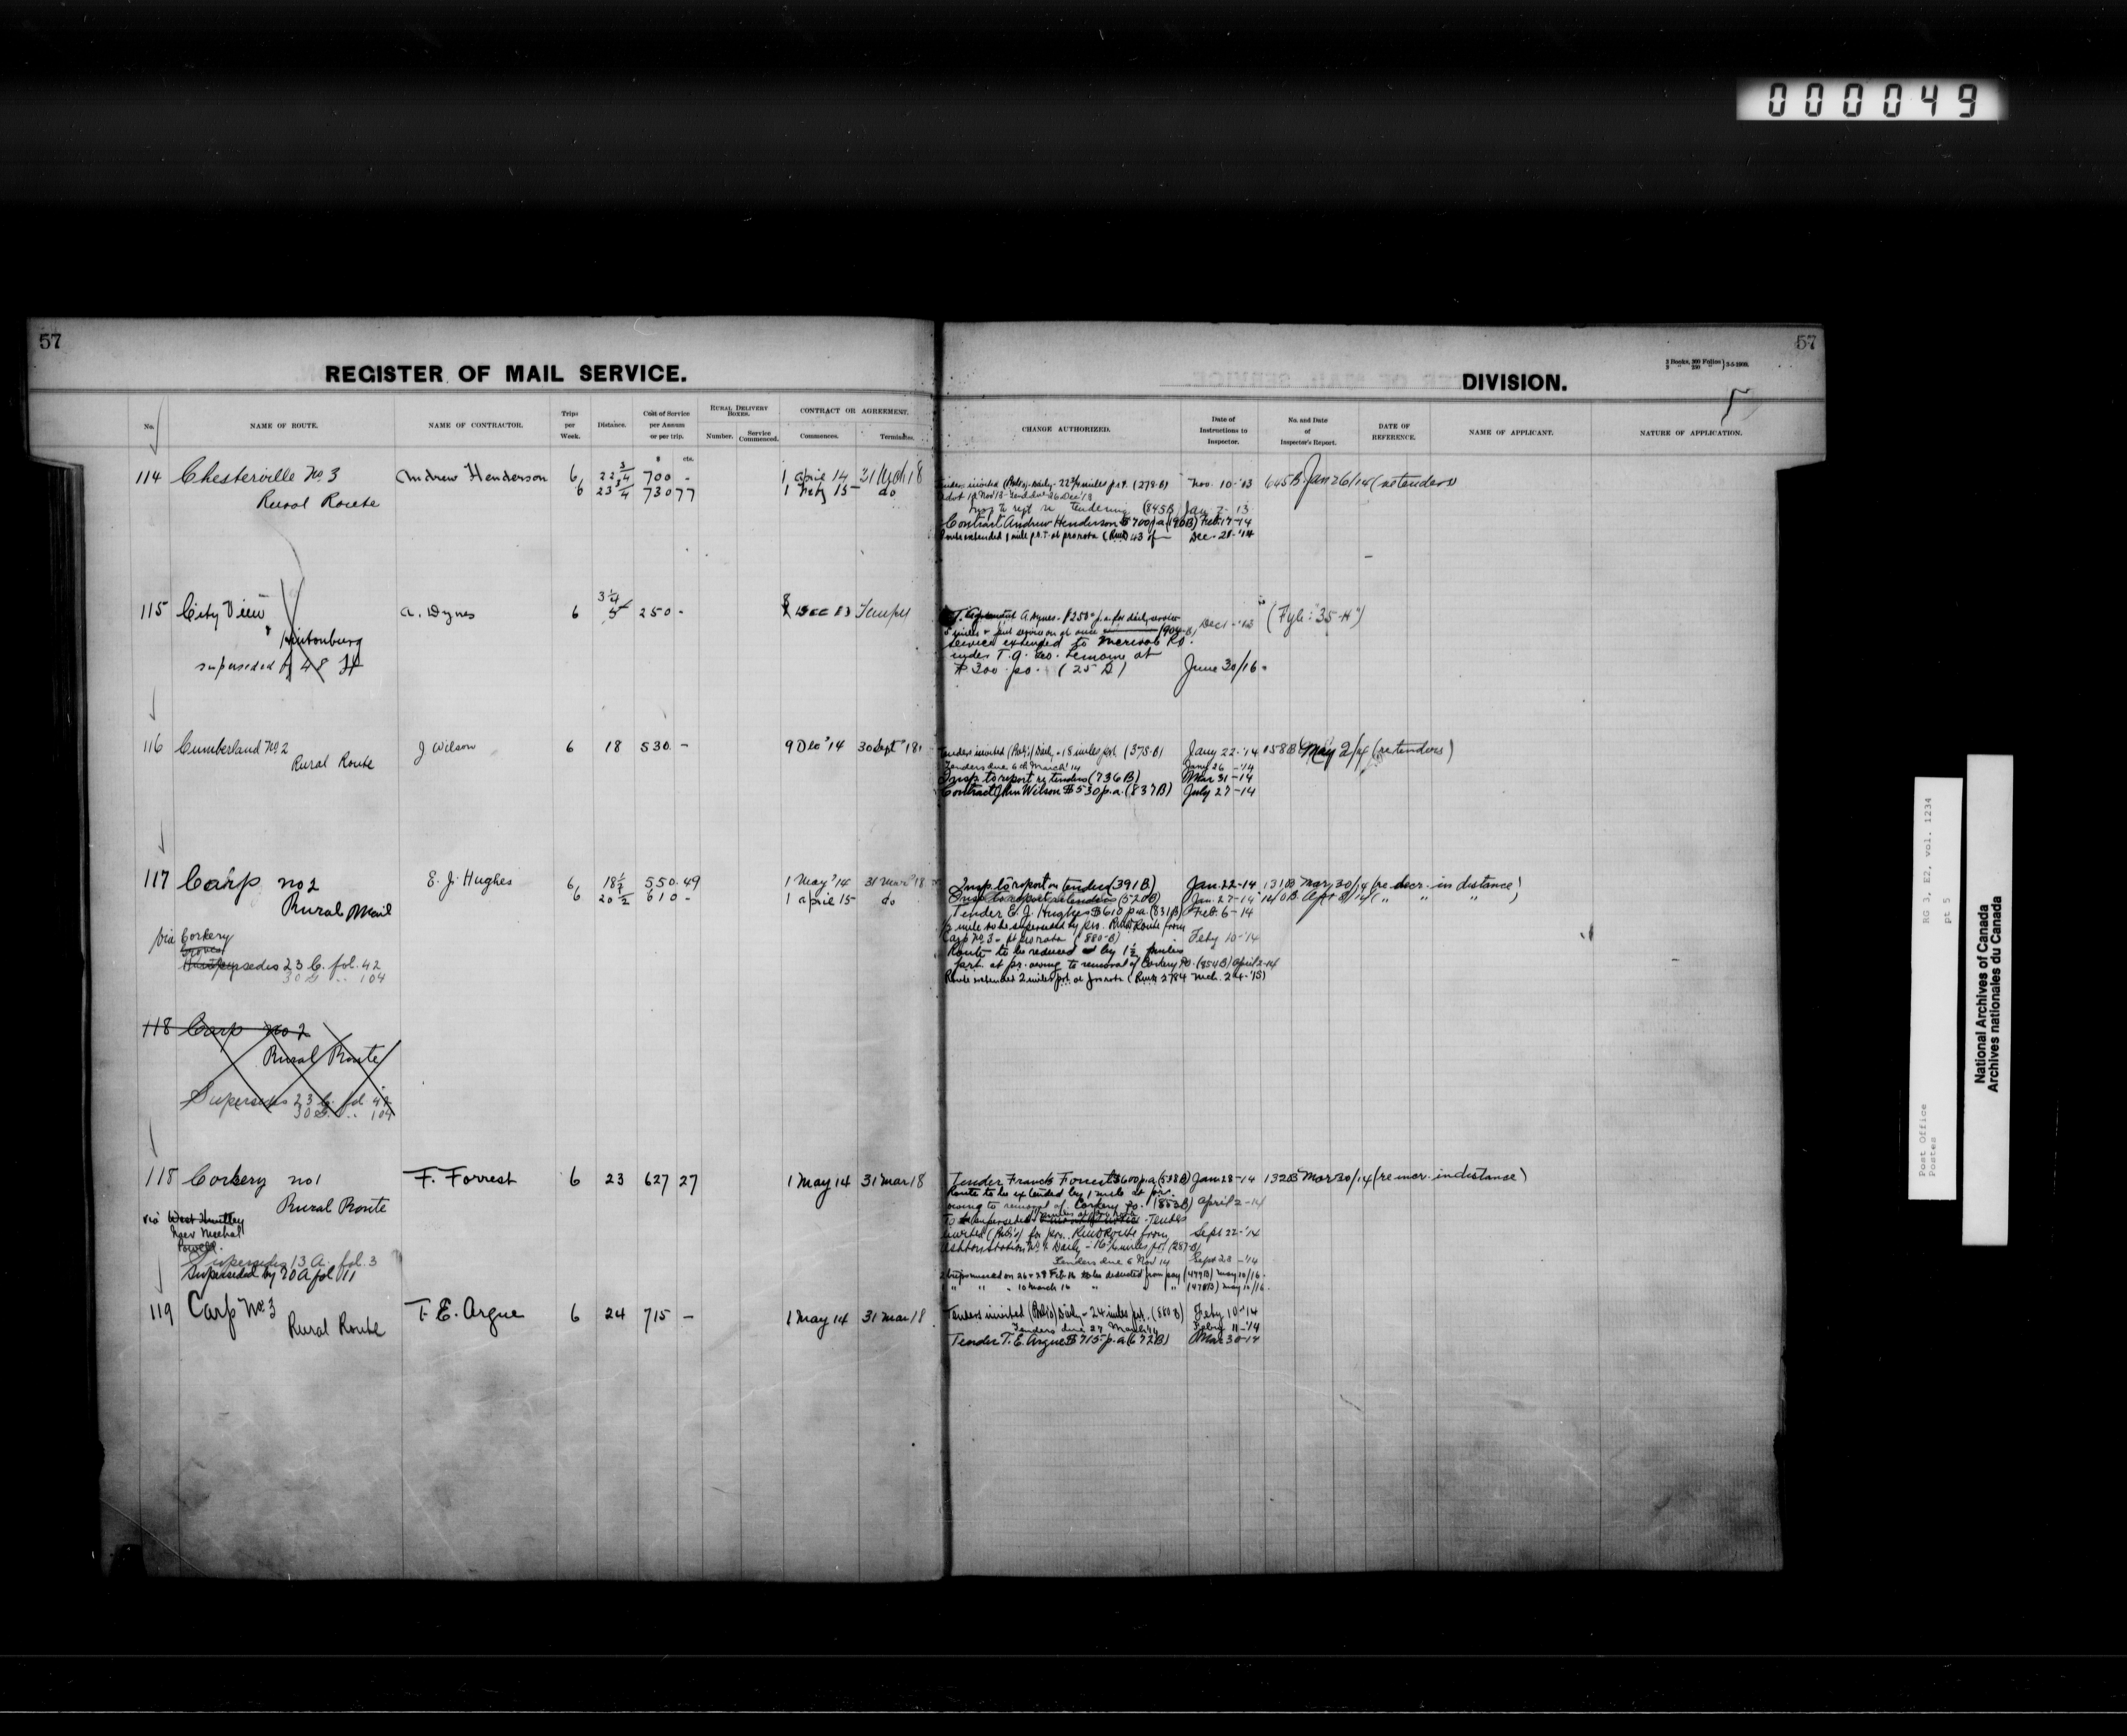 000049
57
57
REGISTER OF MAIL SERVICE.
DIVISION.
No.
NAME OF ROUTE.
NAME OF CONTRACTOR.
Trips per Week.
Distance.
Cost of Service per Annum or per trip.
RURAL DELIVERY BOXES.
Number.
Service Commenced.
CONTRACT OR AGREEMENT.
Commences.
Terminates.
CHANGE AUTHORIZED.
Date of Instructions to Inspector.
No. and Date of Inspector's Report.
DATE OF REFERENCE.
NAME OF APPLICANT.
NATURE OF APPLICATION.
$ cts.
114 Chesterville No. 3 Andrew Henderson 6 22 3/4 700 - 1 April 14 31 Mch 18
Rural Route 6 23 3/4 730 77 1 Feby 15 do
Tenders invited (Pub's) Daily - 22 3/4 miles p.r.t. (278-B) Nov. 10-'13 645B Jan 26/14 (re tenders)
Insp to rept re Tendering (845B) Jan 7-13
Contract Andrew Henderson $700 p.a. (190B) Feb. 17-14
Route extended 1 mile p.r.T. at pro rata Dec. 21-'14
115 City View A. Dynes 6 3 1/4 5 250 - Dec 13 Tempy
& Hintonburg
superseded by 48 H
T. Agreement A. Dynes - $250 p.a. for daily service Dec 1-'13 (Fyle "35-H")
service extended to Merivale Rd.
under T.A. Geo. Lemoine at
$300 pa. (25 D) June 30/16.
116 Cumberland No. 2 J Wilson 6 18 530 - 9 Dec '14 30 Sept '18
Rural Route
Tenders invited (Pub's) Daily - 18 miles p.r.t. (378-B) Jany 22-'14 158B May 2/14 (re tenders)
Tenders due 6th March '14 Jany 26-'14
Insp to report re tenders (736B) Mar 31-14
Contract John Wilson $530 p.a. (837B) July 27-14
117 Carp no 2 E. J. Hughes 6 18 1/2 550.49 1 May '14 31 Mar '18
Rural Mail 6 20 1/2 610 - 1 April 15 do
via Corkery
supersedes 23 C. fol. 42
30 " .. 104
Insp to report on tenders (391B) Jan. 22-14 131B Mar 30/14 (re decr. in distance)
Insp to report re tenders (520B) Jan. 27-14 140B Apr 8/14 ( " " " )
Tender E. J. Hughes $610 p.a. (831B) Feb. 6-14
mile to be superseded by pro. Rural Route from
Carp No. 3 - at pro rata (880-B) Feby 10-'14
Route to be reduced by 1 1/2 miles
p.r.t. at pr. owing to removal of Corkery P.O. (854B) April 2-14
Route extended 2 miles p.r.t. at pro rata (Rural 2784 Mch. 24-'15)
118 Carp no 2
Rural Route
Supersedes 23 C. fol 42
30 " .. 104
118 Corkery no 1 F. Forrest 6 23 627 27 1 May 14 31 Mar 18
Rural Route
via West Huntley
Powell
Supersedes 13 A. fol. 3
Superseded by 20 A fol 11
Tender Francis Forrest $600 p.a. (538B) Jan 28-14 132B Mar 30/14 (re incr. in distance)
Route to be extended by 1 mile at pr.
owing to removal of Corkery P.O. (853B) April 2-14
invited (Pub's) for pro. Rural Route from Sept 22-'14
Ashton Station No. 1 Daily - 16 1/2 miles p.r.t. (287-B)
Tenders due 6 Nov 14 Sept 28-'14
119 Carp No. 3 T. E. Argue 6 24 715 - 1 May 14 31 Mar 18
Rural Route
Tenders invited (Pub's) Daily - 24 miles p.r.t. (880B) Feby 10-'14
Tenders due 27 March '14 Feby 11-'14
Tender T. E. Argue $715 p.a. (672B) Mar 30-14
Post Office
Postes
RG 3, E2, vol. 1234
pt 5
National Archives of Canada
Archives nationales du Canada